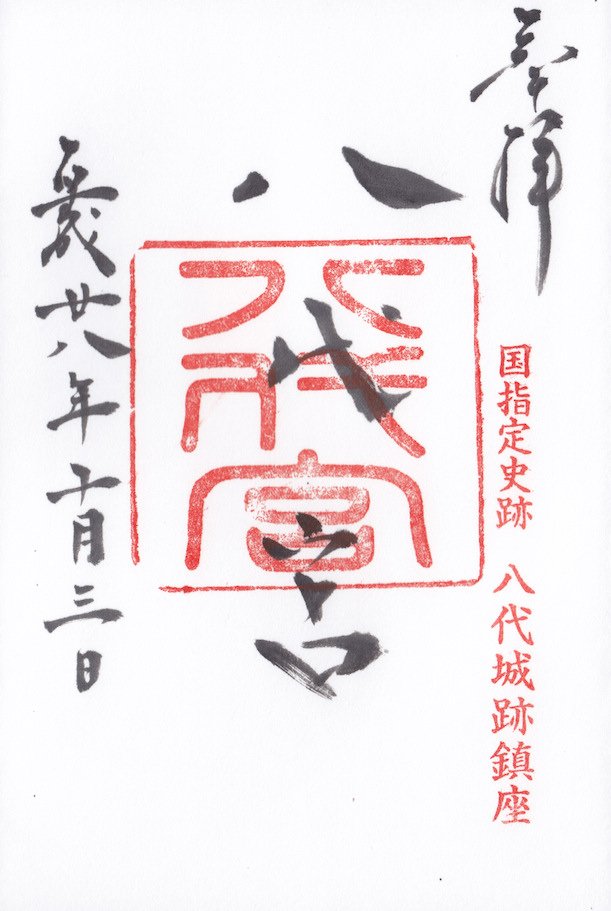 奉拝
国指定史跡 八代城跡鎮座
八代宮
八代宮
平成廿八年十月三日